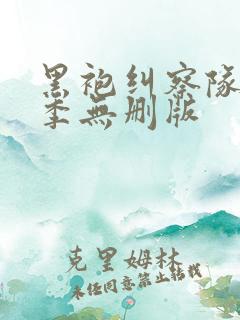 黑袍纠察队
季無删版
克里姆林
未经同意禁止转载